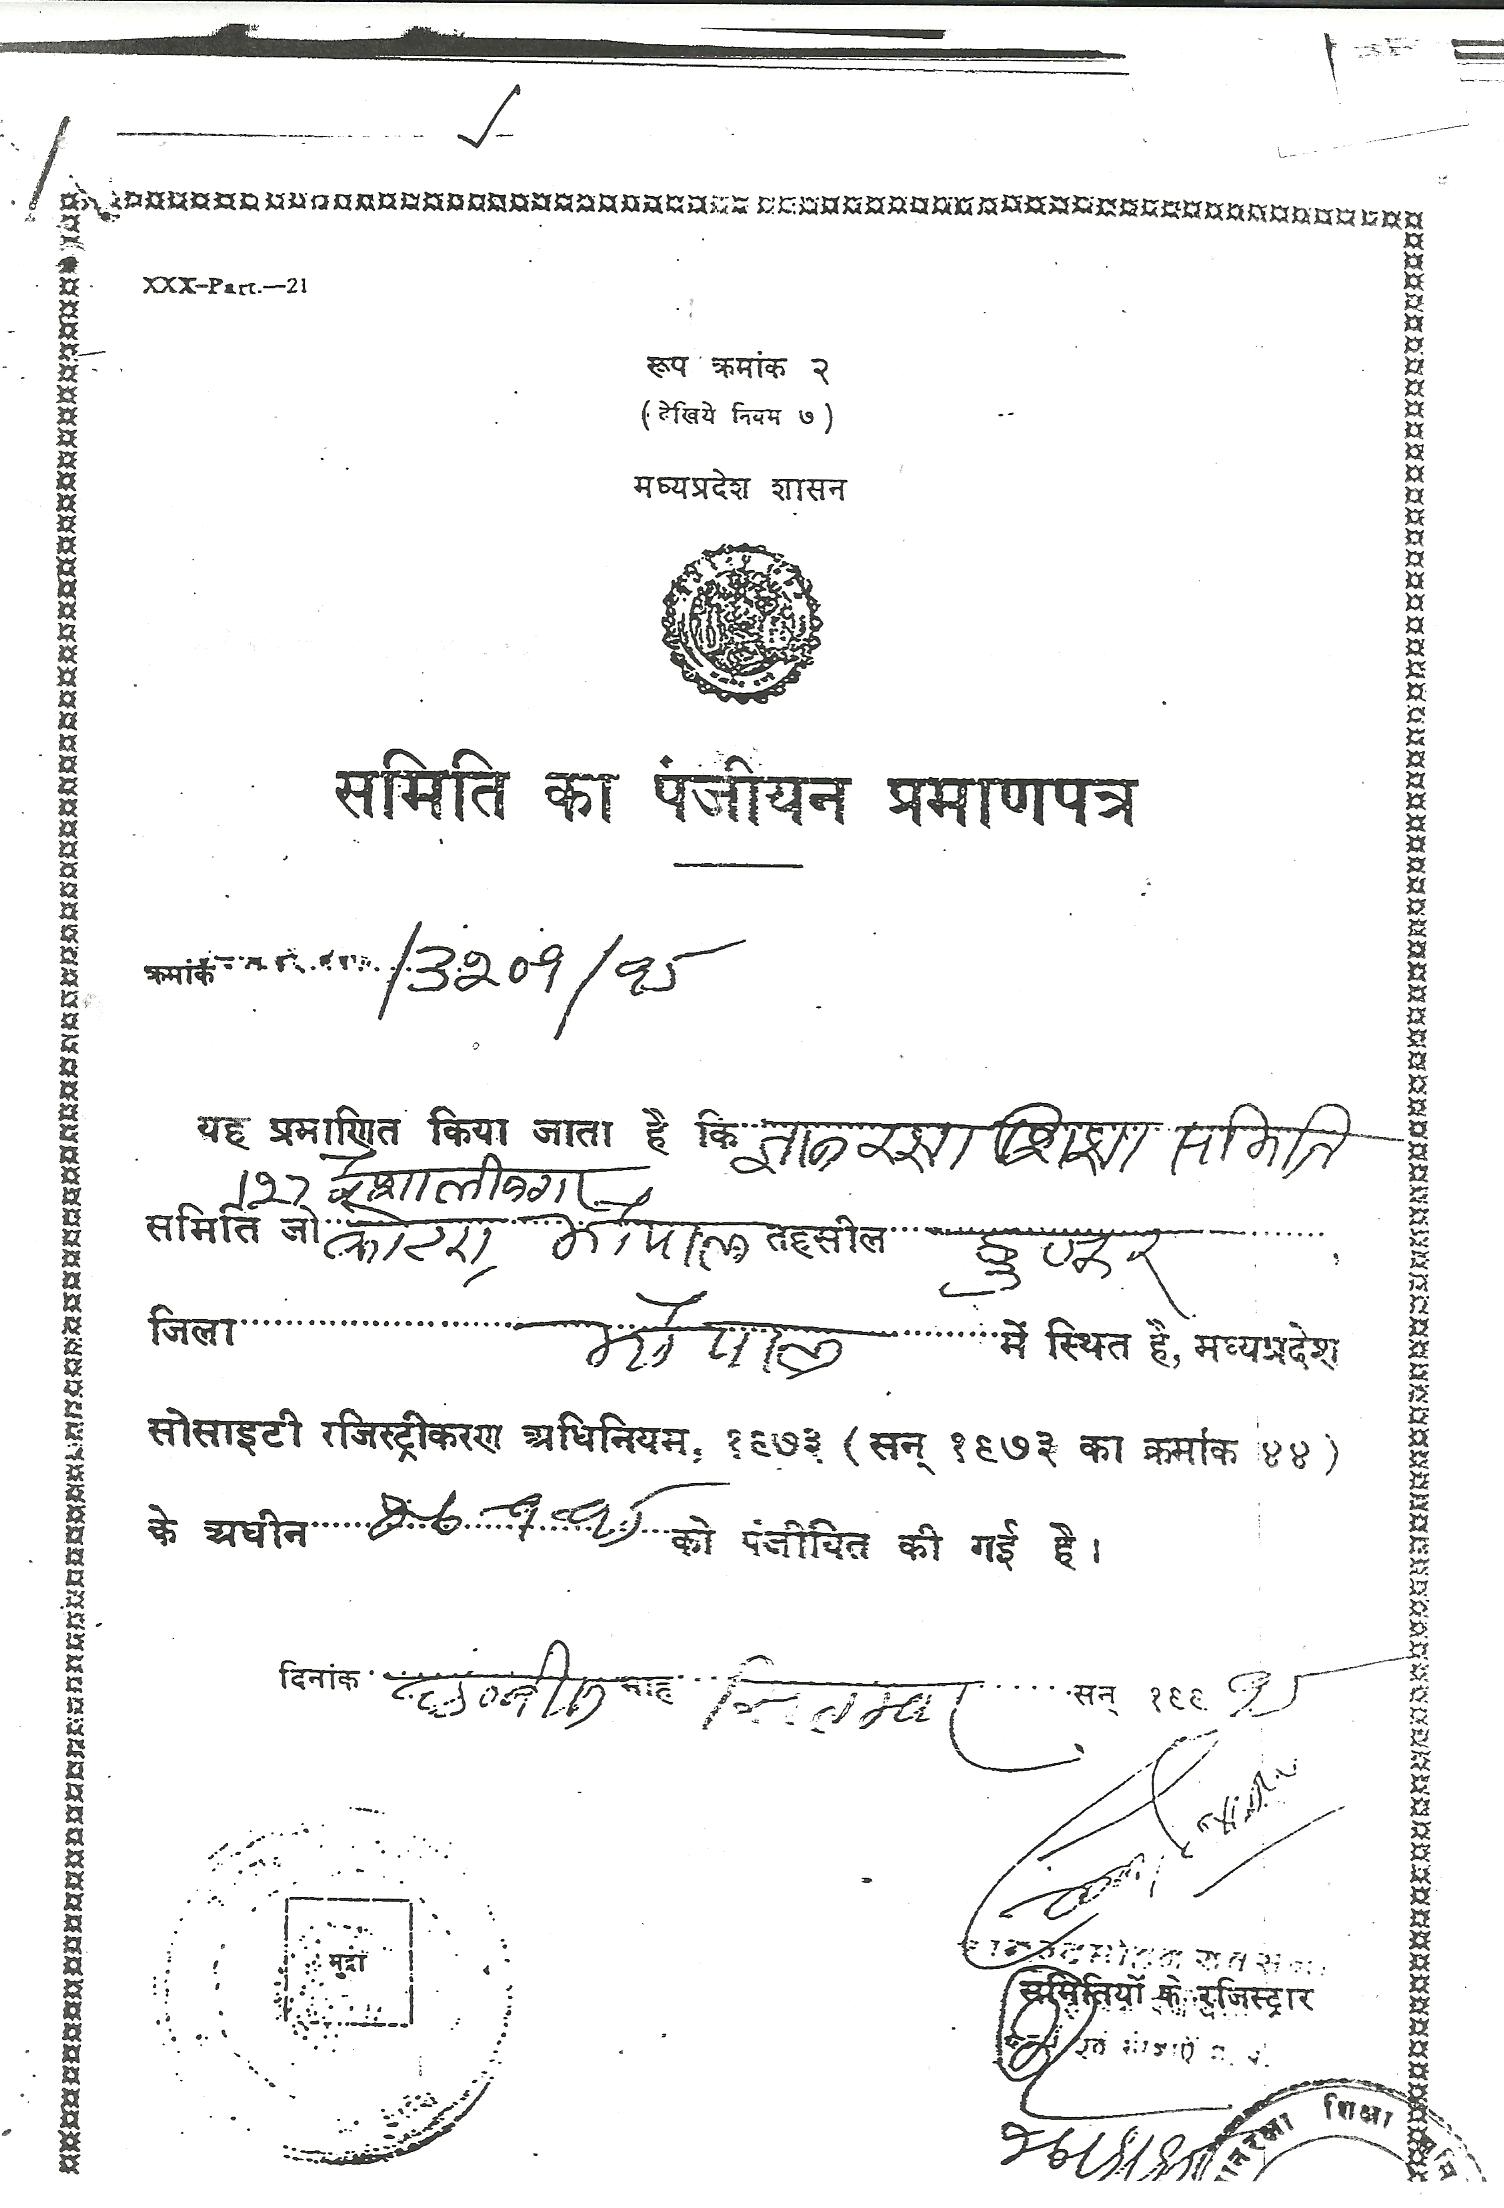 XXX-Part.—21
रूप क्रमांक २
(देखिये नियम ७)
मध्यप्रदेश शासन
समिति का पंजीयन प्रमाणपत्र
क्रमांक /3२०१/९5
यह प्रमाणित किया जाता है कि ज्ञान रक्षा शिक्षा समिति
127 वैशाली नगर
समिति जो कोटरा, भोपाल तहसील हुजूर
जिला भोपाल में स्थित है, मध्यप्रदेश
सोसाइटी रजिस्ट्रीकरण अधिनियम, १९७३ (सन् १९७३ का क्रमांक ४४)
के अधीन को पंजीयित की गई है।
दिनांक माह सितम्बर सन् १९९
मुद्रा
समितियों के रजिस्ट्रार
ज्ञानरक्षा शिक्षा